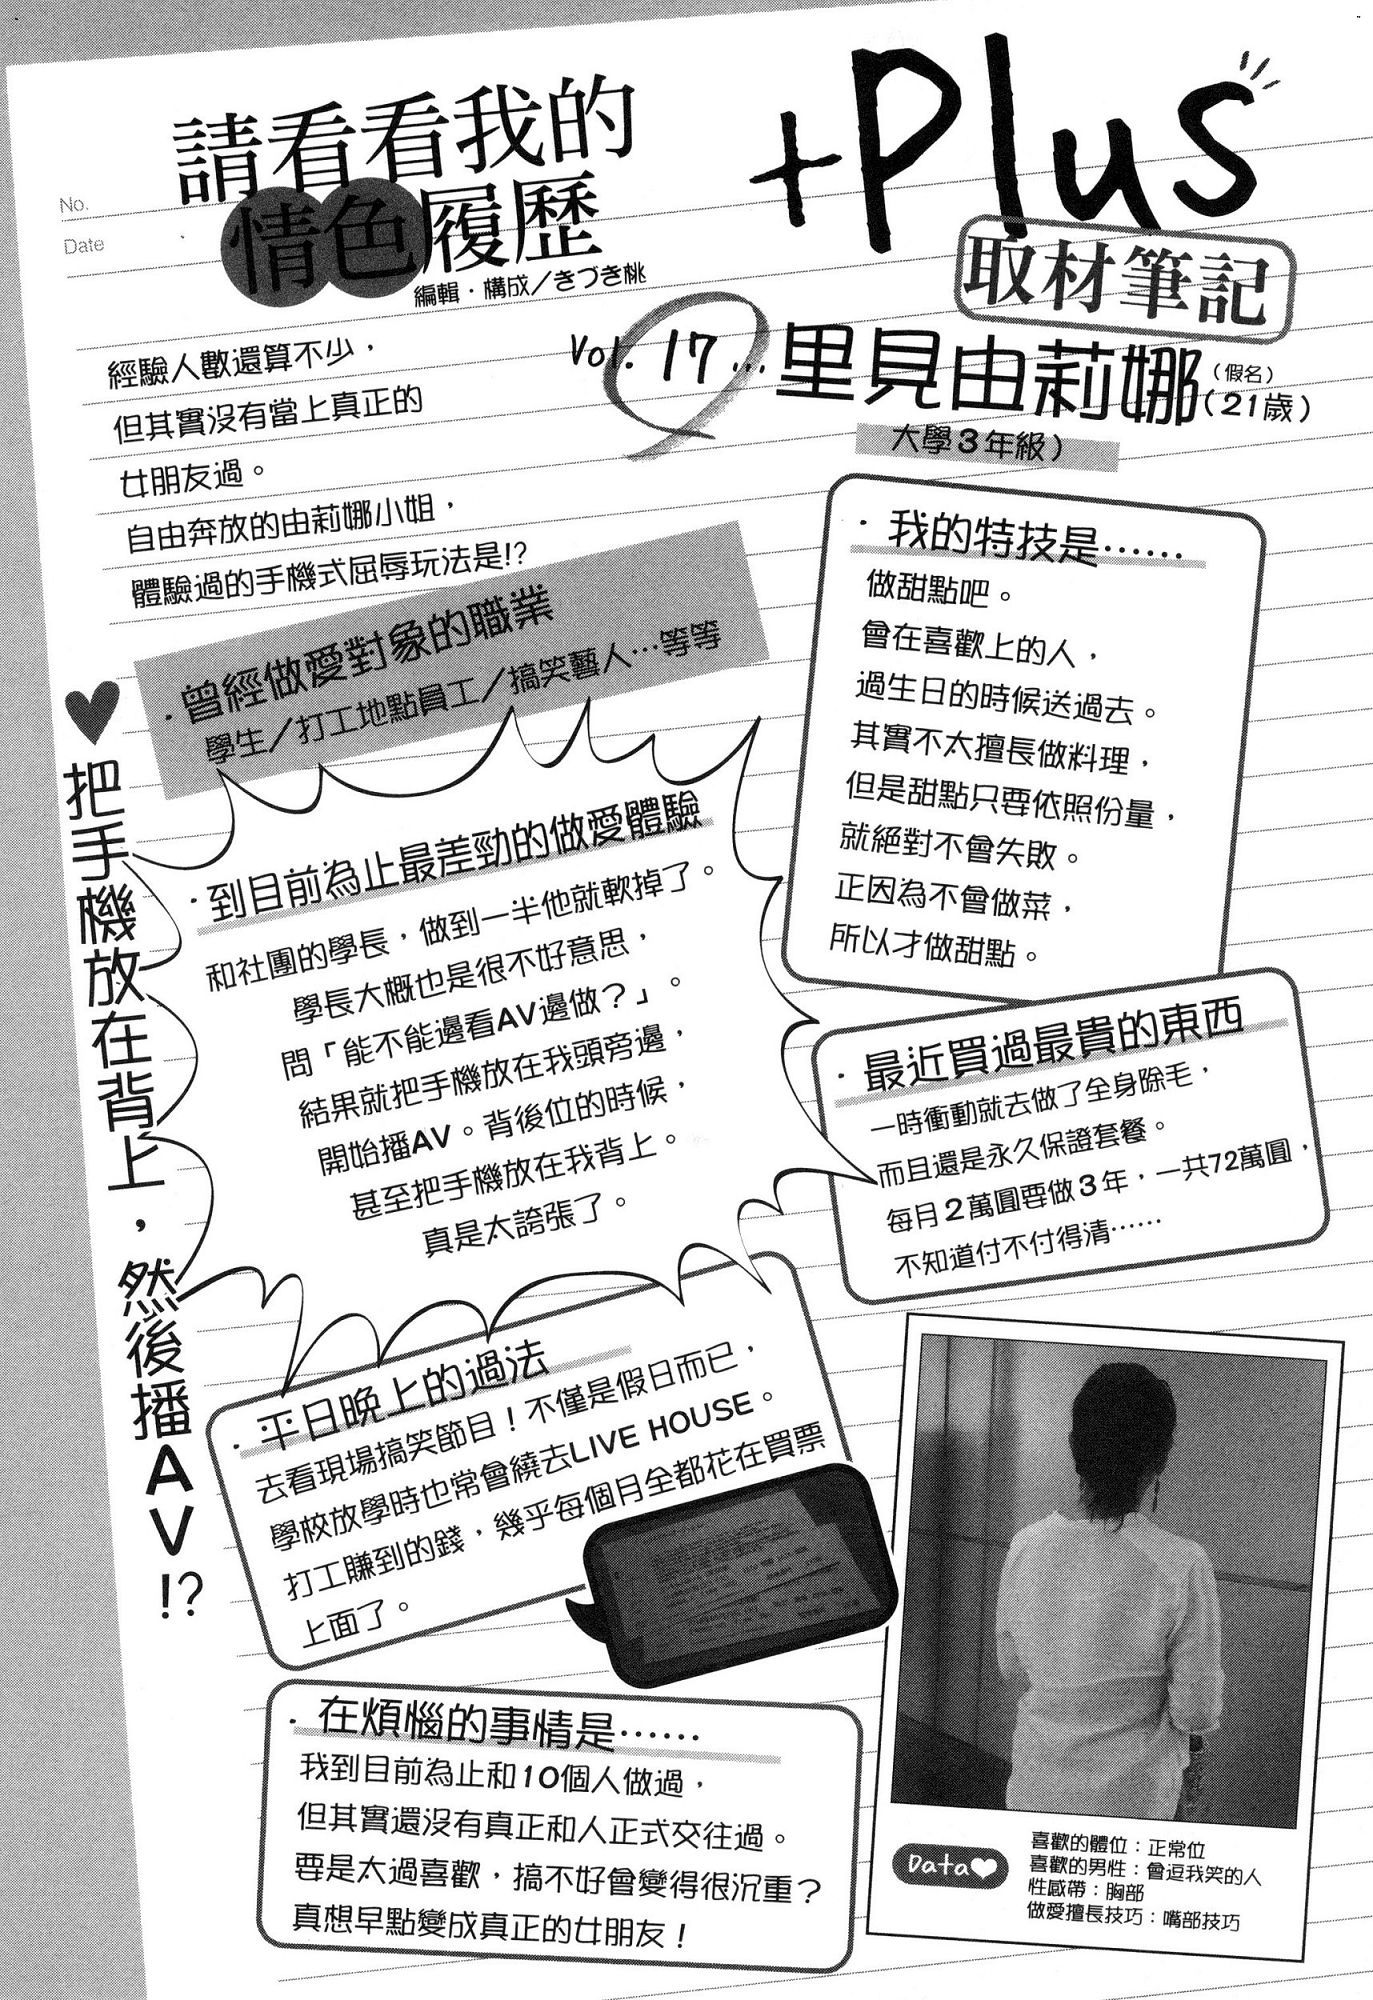 No.
Date
請看看我的
情色履歷
編輯・構成／きづき桃
+Plus
取材筆記
Vol. 17…里見由莉娜（假名）（21歲）
大學3年級）
經驗人數還算不少，
但其實沒有當上真正的
女朋友過。
自由奔放的由莉娜小姐，
體驗過的手機式屈辱玩法是!?
・曾經做愛對象的職業
學生／打工地點員工／搞笑藝人…等等
・我的特技是……
做甜點吧。
會在喜歡上的人，
過生日的時候送過去。
其實不太擅長做料理，
但是甜點只要依照份量，
就絕對不會失敗。
正因為不會做菜，
所以才做甜點。
♥把手機放在背上，然後播AV!?
・到目前為止最差勁的做愛體驗
和社團的學長，做到一半他就軟掉了。
學長大概也是很不好意思，
問「能不能邊看AV邊做？」。
結果就把手機放在我頭旁邊，
開始播AV。背後位的時候，
甚至把手機放在我背上。
真是太誇張了。
・最近買過最貴的東西
一時衝動就去做了全身除毛，
而且還是永久保證套餐。
每月2萬圓要做3年，一共72萬圓，
不知道付不付得清……
・平日晚上的過法
去看現場搞笑節目！不僅是假日而已，
學校放學時也常會繞去LIVE HOUSE。
打工賺到的錢，幾乎每個月全都花在買票
上面了。
・在煩惱的事情是……
我到目前為止和10個人做過，
但其實還沒有真正和人正式交往過。
要是太過喜歡，搞不好會變得很沉重？
真想早點變成真正的女朋友！
Data♥
喜歡的體位：正常位
喜歡的男性：會逗我笑的人
性感帶：胸部
做愛擅長技巧：嘴部技巧